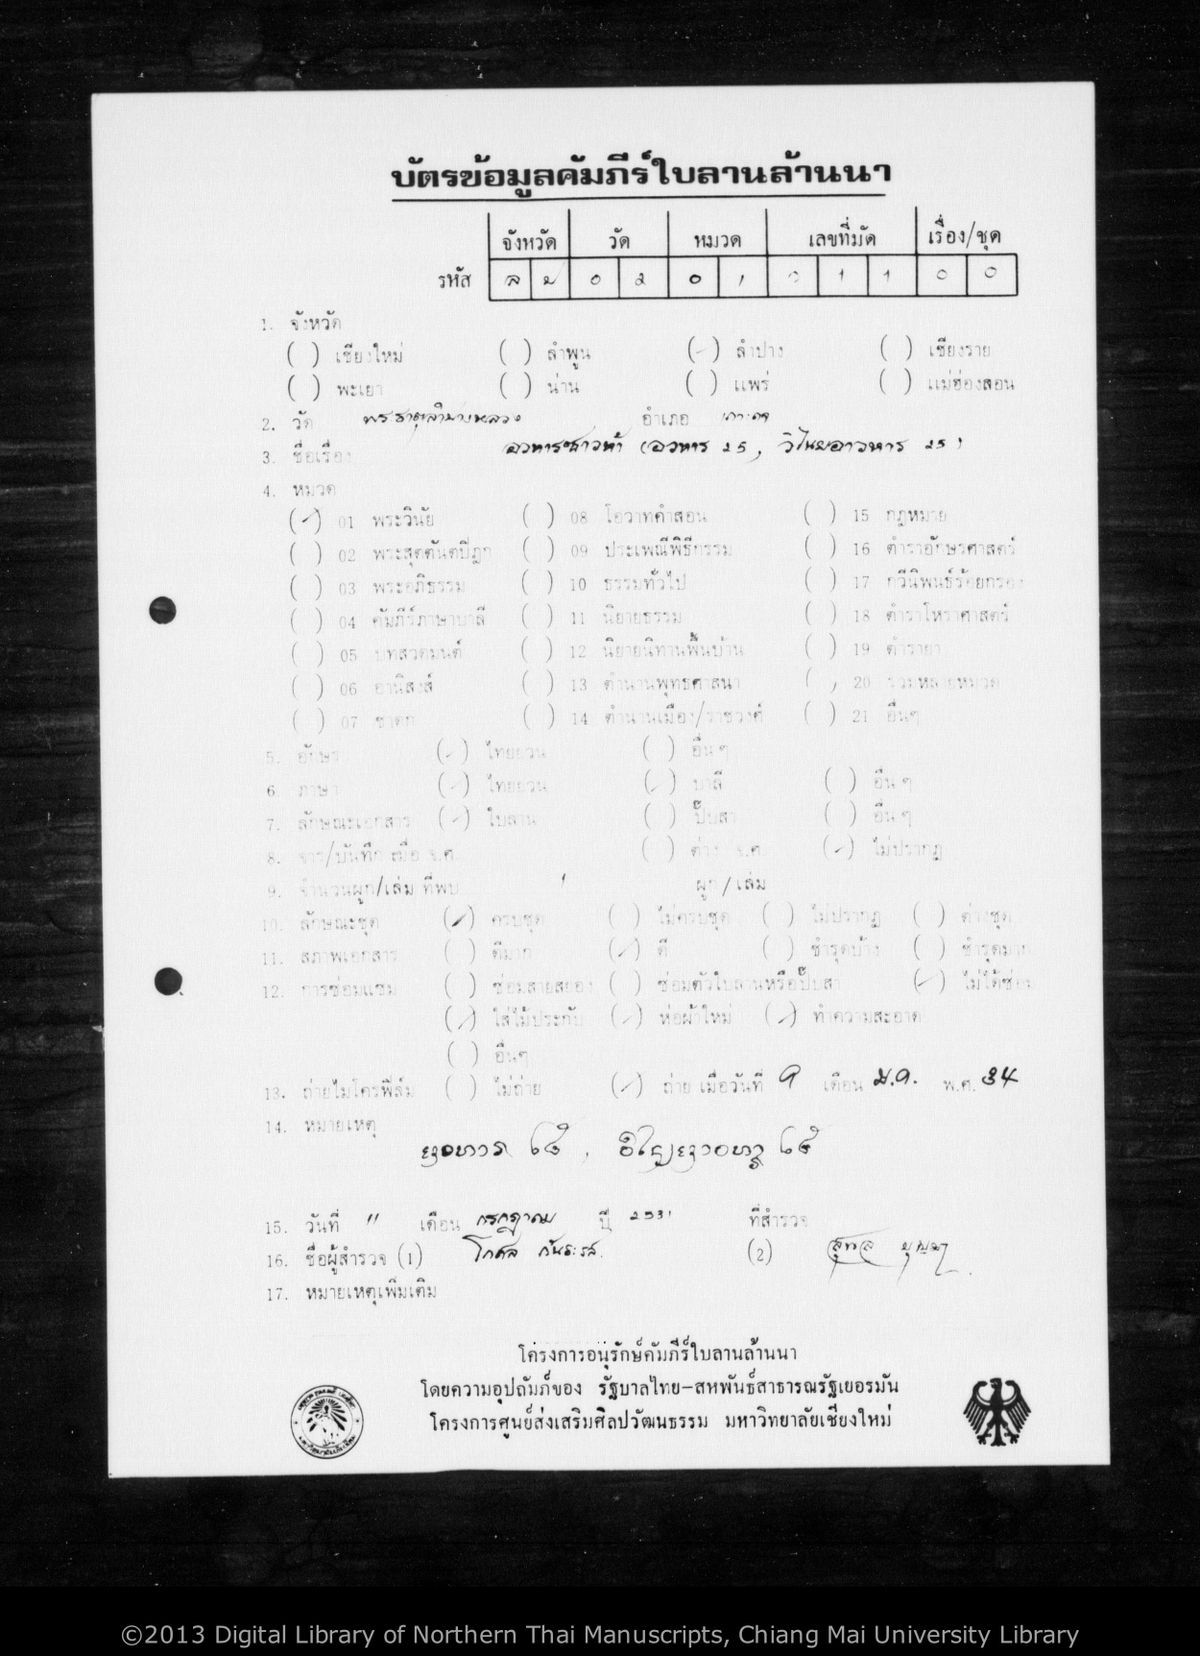 บัตรข้อมูลคัมภีร์ใบลานล้านนา
จังหวัด วัด หมวด เลขที่มัด เรื่อง/ชุด
รหัส ล ป 0 2 0 1 0 1 1 0 0
1. จังหวัด
( ) เชียงใหม่ ( ) ลำพูน (✓) ลำปาง ( ) เชียงราย
( ) พะเยา ( ) น่าน ( ) แพร่ ( ) แม่ฮ่องสอน
2. วัด พระธาตุลำปางหลวง อำเภอ เกาะคา
3. ชื่อเรื่อง อวหารซาวห้า (อวหาร 25, วินัยอาวหาร 25)
4. หมวด
(✓) 01 พระวินัย ( ) 08 โอวาทคำสอน ( ) 15 กฎหมาย
( ) 02 พระสุตตันตปิฎก ( ) 09 ประเพณีพิธีกรรม ( ) 16 ตำราอักษรศาสตร์
( ) 03 พระอภิธรรม ( ) 10 ธรรมทั่วไป ( ) 17 กวีนิพนธ์ร้อยกรอง
( ) 04 คัมภีร์ภาษาบาลี ( ) 11 นิยายธรรม ( ) 18 ตำราโหราศาสตร์
( ) 05 บทสวดมนต์ ( ) 12 นิยายนิทานพื้นบ้าน ( ) 19 ตำรายา
( ) 06 อานิสงส์ ( ) 13 ตำนานพุทธศาสนา ( ) 20 รวมหลายหมวด
( ) 07 ชาดก ( ) 14 ตำนานเมือง/ราชวงศ์ ( ) 21 อื่นๆ
5. อักษร (✓) ไทยยวน ( ) อื่น ๆ
6. ภาษา (✓) ไทยยวน (✓) บาลี ( ) อื่น ๆ
7. ลักษณะเอกสาร (✓) ใบลาน ( ) ปั๊บสา ( ) อื่น ๆ
8. จาร/บันทึก เมื่อ จ.ศ. ( ) ต่าง จ.ศ. (✓) ไม่ปรากฏ
9. จำนวนผูก/เล่ม ที่พบ 1 ผูก/เล่ม
10. ลักษณะชุด (✓) ครบชุด ( ) ไม่ครบชุด ( ) ไม่ปรากฏ ( ) ต่างชุด
11. สภาพเอกสาร ( ) ดีมาก (✓) ดี ( ) ชำรุดบ้าง ( ) ชำรุดมาก
12. การซ่อมแซม ( ) ซ่อมสายสยอง ( ) ซ่อมตัวใบลานหรือปั๊บสา (✓) ไม่ได้ซ่อม
(✓) ใส่ไม้ประกับ (✓) ห่อผ้าใหม่ (✓) ทำความสะอาด
( ) อื่นๆ
13. ถ่ายไมโครฟิล์ม ( ) ไม่ถ่าย (✓) ถ่าย เมื่อวันที่ 9 เดือน ม.ค. พ.ศ. 34
14. หมายเหตุ
15. วันที่ 11 เดือน กรกฎาคม ปี 2531 ที่สำรวจ
16. ชื่อผู้สำรวจ (1) โกศล (2)
17. หมายเหตุเพิ่มเติม
โครงการอนุรักษ์คัมภีร์ใบลานล้านนา
โดยความอุปถัมภ์ของ รัฐบาลไทย-สหพันธ์สาธารณรัฐเยอรมัน
โครงการศูนย์ส่งเสริมศิลปวัฒนธรรม มหาวิทยาลัยเชียงใหม่
©2013 Digital Library of Northern Thai Manuscripts, Chiang Mai University Library